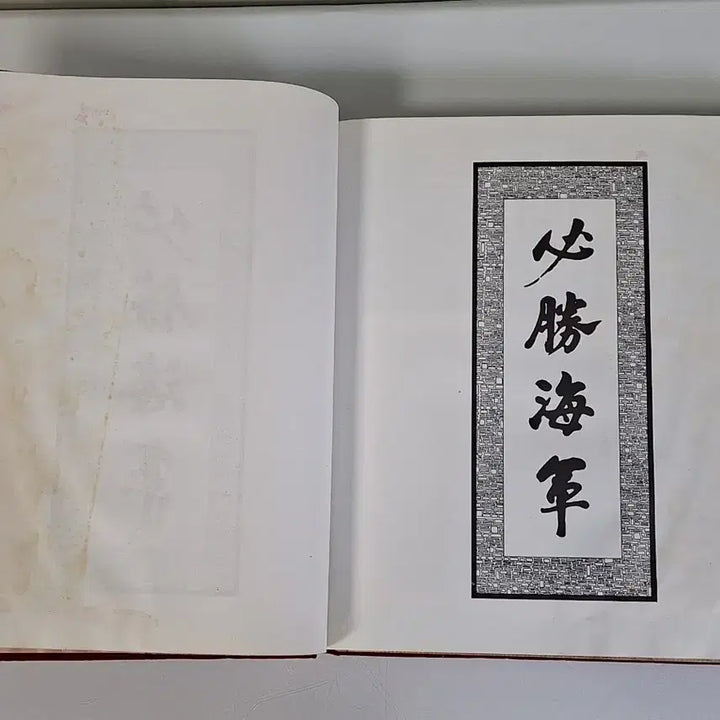 必勝海軍